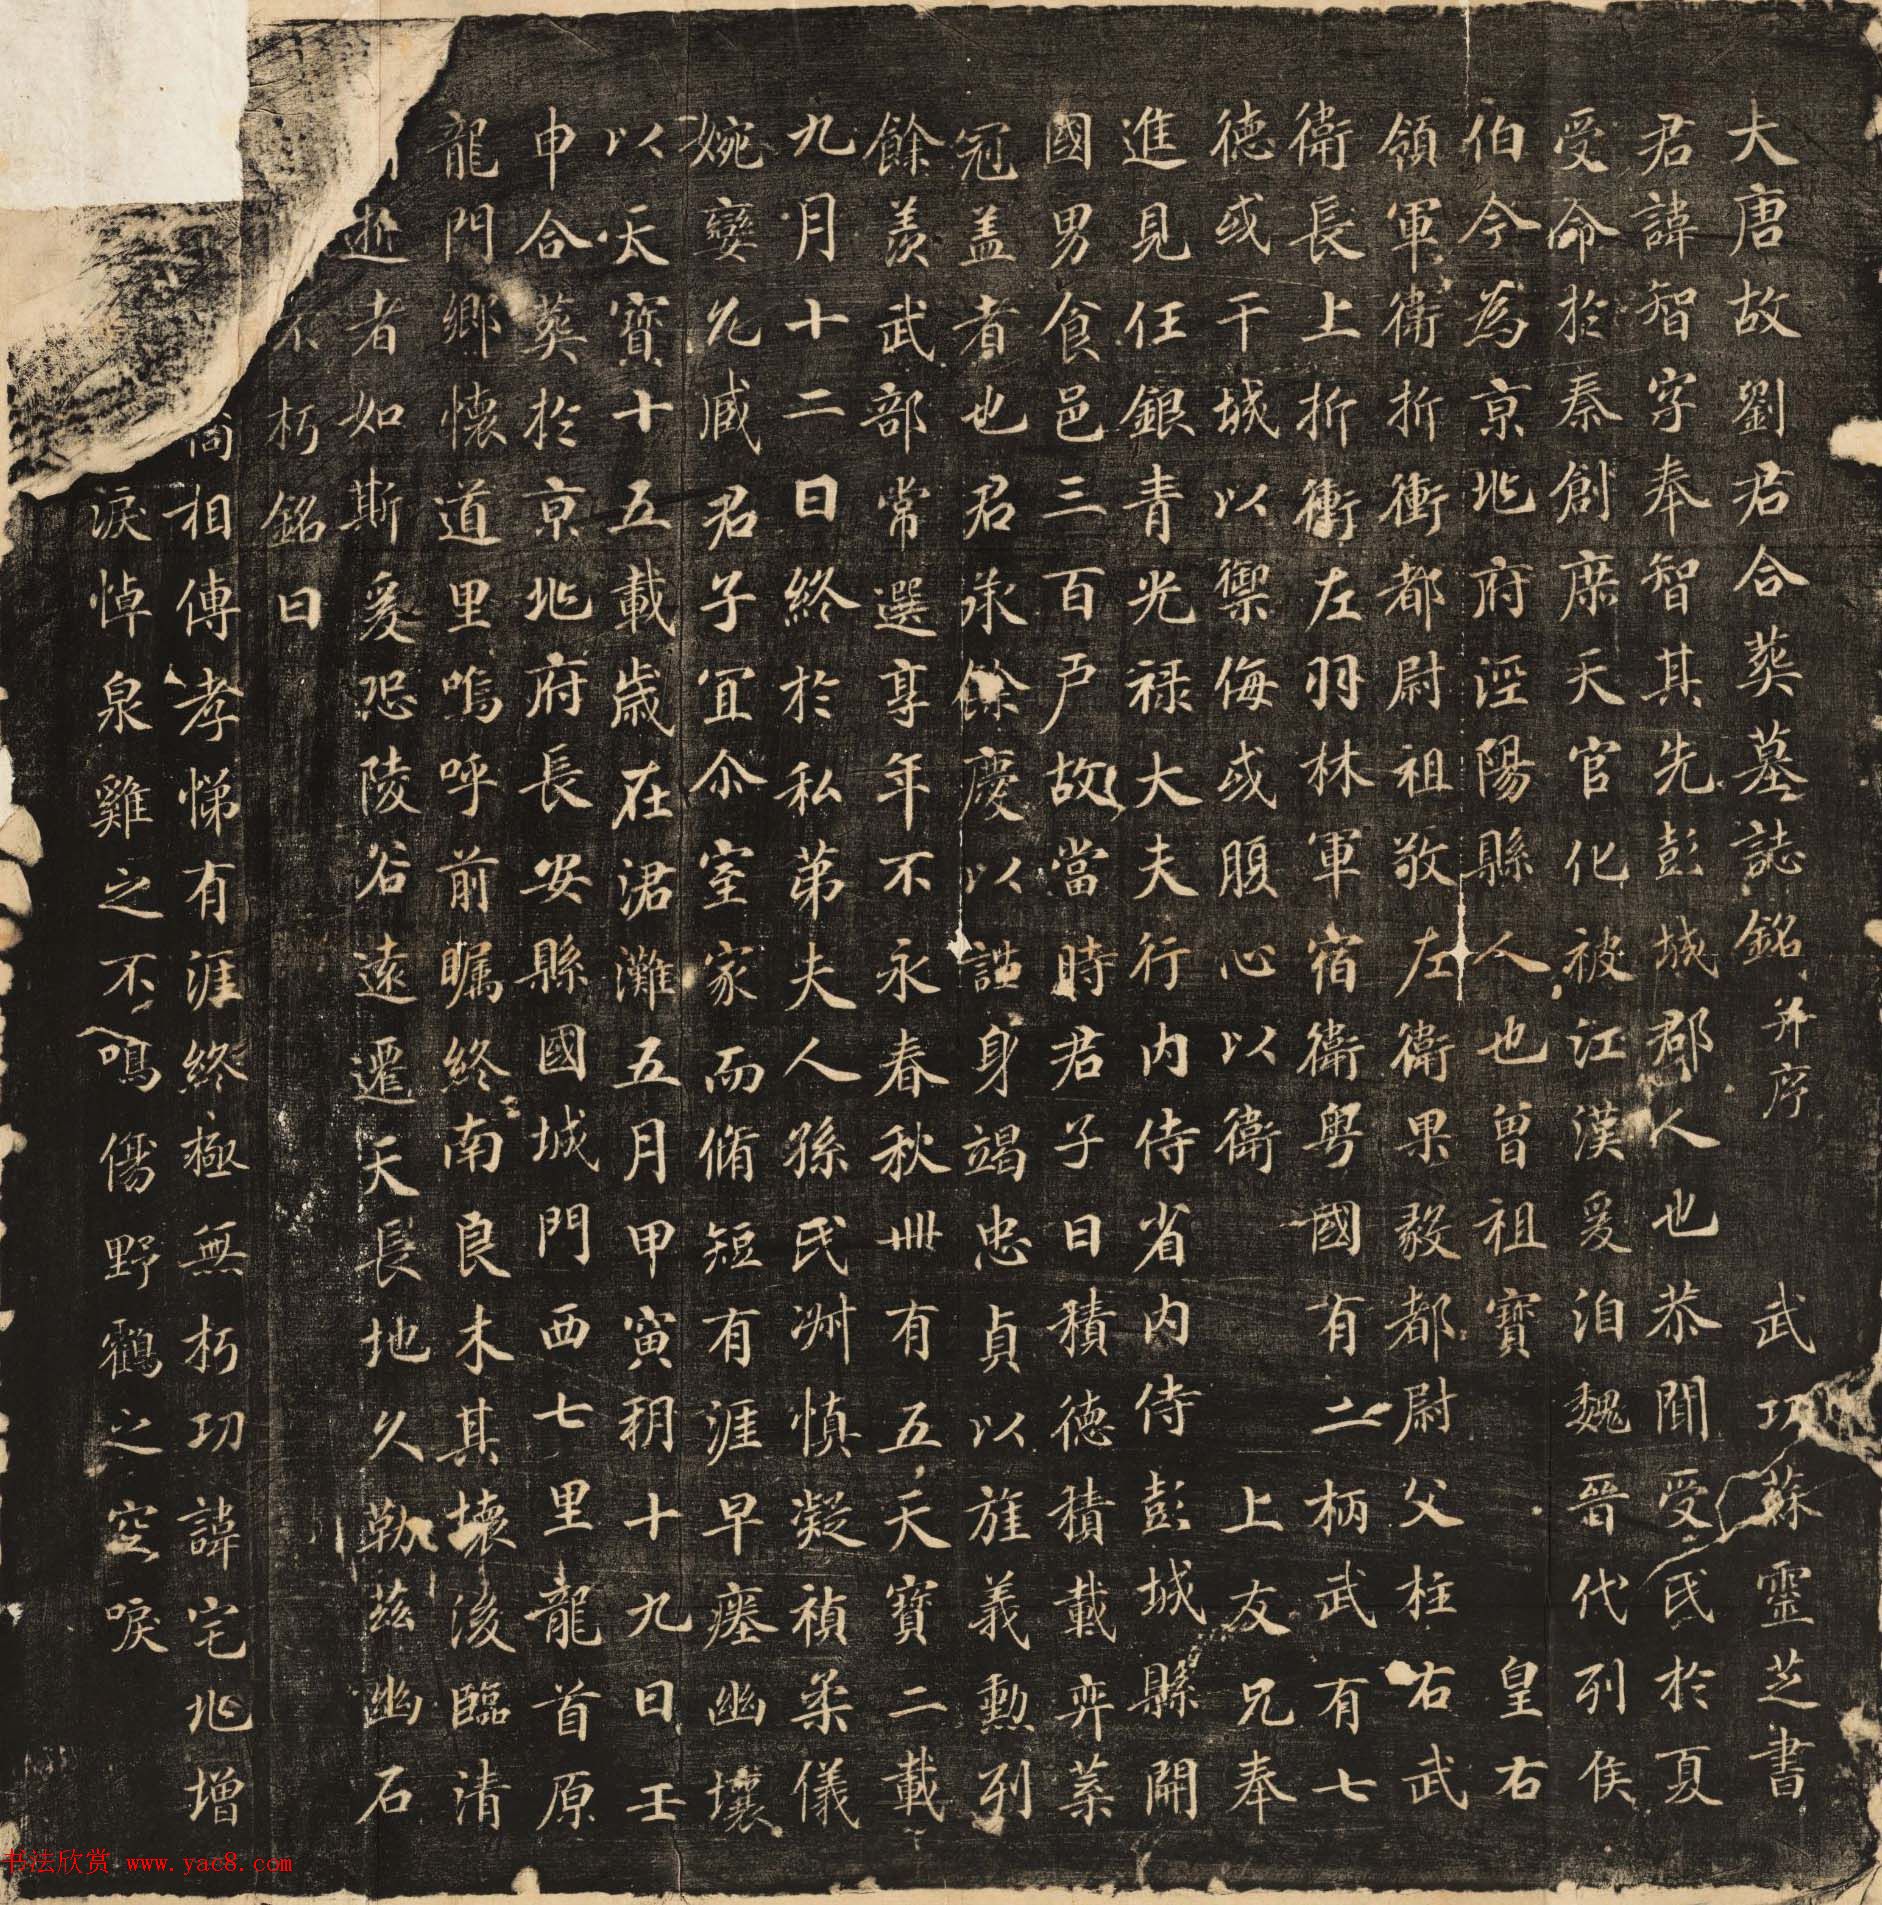 大唐故劉君合葬墓誌銘并序 武功蘇靈芝書
君諱智字奉智其先彭城郡人也恭聞受氏於夏
受命於秦創庶天官化被江漢爰洎魏晉代列侯
伯今為京兆府涇陽縣人也曾祖寶 皇右
領軍衛折衝都尉祖敬左衛果毅都尉父柱右武
衛長上折衝左羽林軍宿衛粤國有二柄武有七
德或干城以禦侮或腹心以衛 上友兄奉
進見任銀青光禄大夫行内侍省内侍彭城縣開
國男食邑三百户故當時君子曰積德積載弈葉
冠盖者也君承餘慶以誕身竭忠貞以旌義勲列
餘羡武部常選享年不永春秋卌有五天寶二載
九月十二日終於私第夫人孫氏淋慎凝禎柔儀
婉孌允臧君子宜尒室家而脩短有涯早瘞幽壤
以天寶十五載歲在涒灘五月甲寅朔十九日壬
申合葬於京兆府長安縣國城門西七里龍首原
龍門鄉懷道里嗚呼前矚終南良木其壞後臨清
逝者如斯爰恐陵谷遠遷天長地久勒茲幽石
不朽銘曰
相傳孝悌有涯終極無朽功諱宅兆增
淚悼泉雞之不鳴傷野鶴之空唳
书法欣赏 www.yac8.com